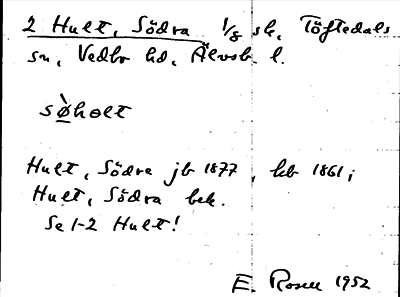 2 Hult, Södra 1/8 sk, Töftedals
sn, Vedbo hd, Älvsb. l.
sø̀holt
Hult, Södra jb 1877, kb 1861;
Hult, Södra bek.
Se 1-2 Hult!
E. Rosell 1952